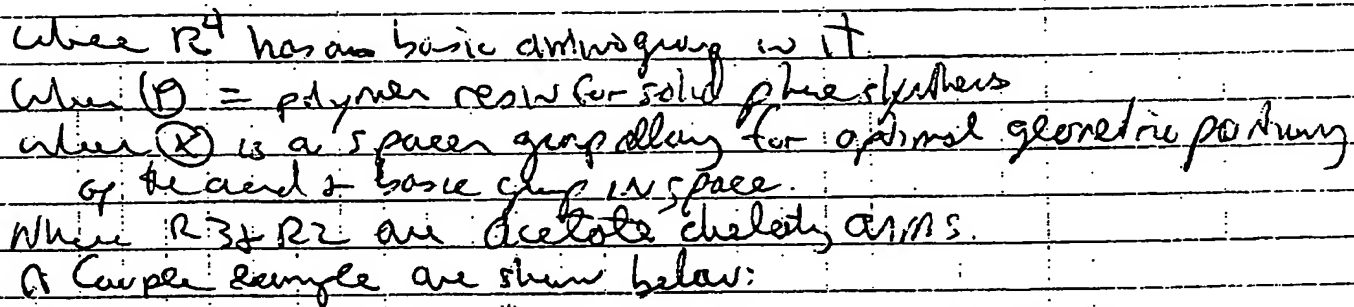 where R4 has a basic amino group in it
when (P) = polymer resin for solid phase synthesis
when (X) is a spacer group allowing for optimal geometric positioning
of the acid & basic group in space.
Where R3 & R2 are acetate chelating arms.
A Couple example are shown below: